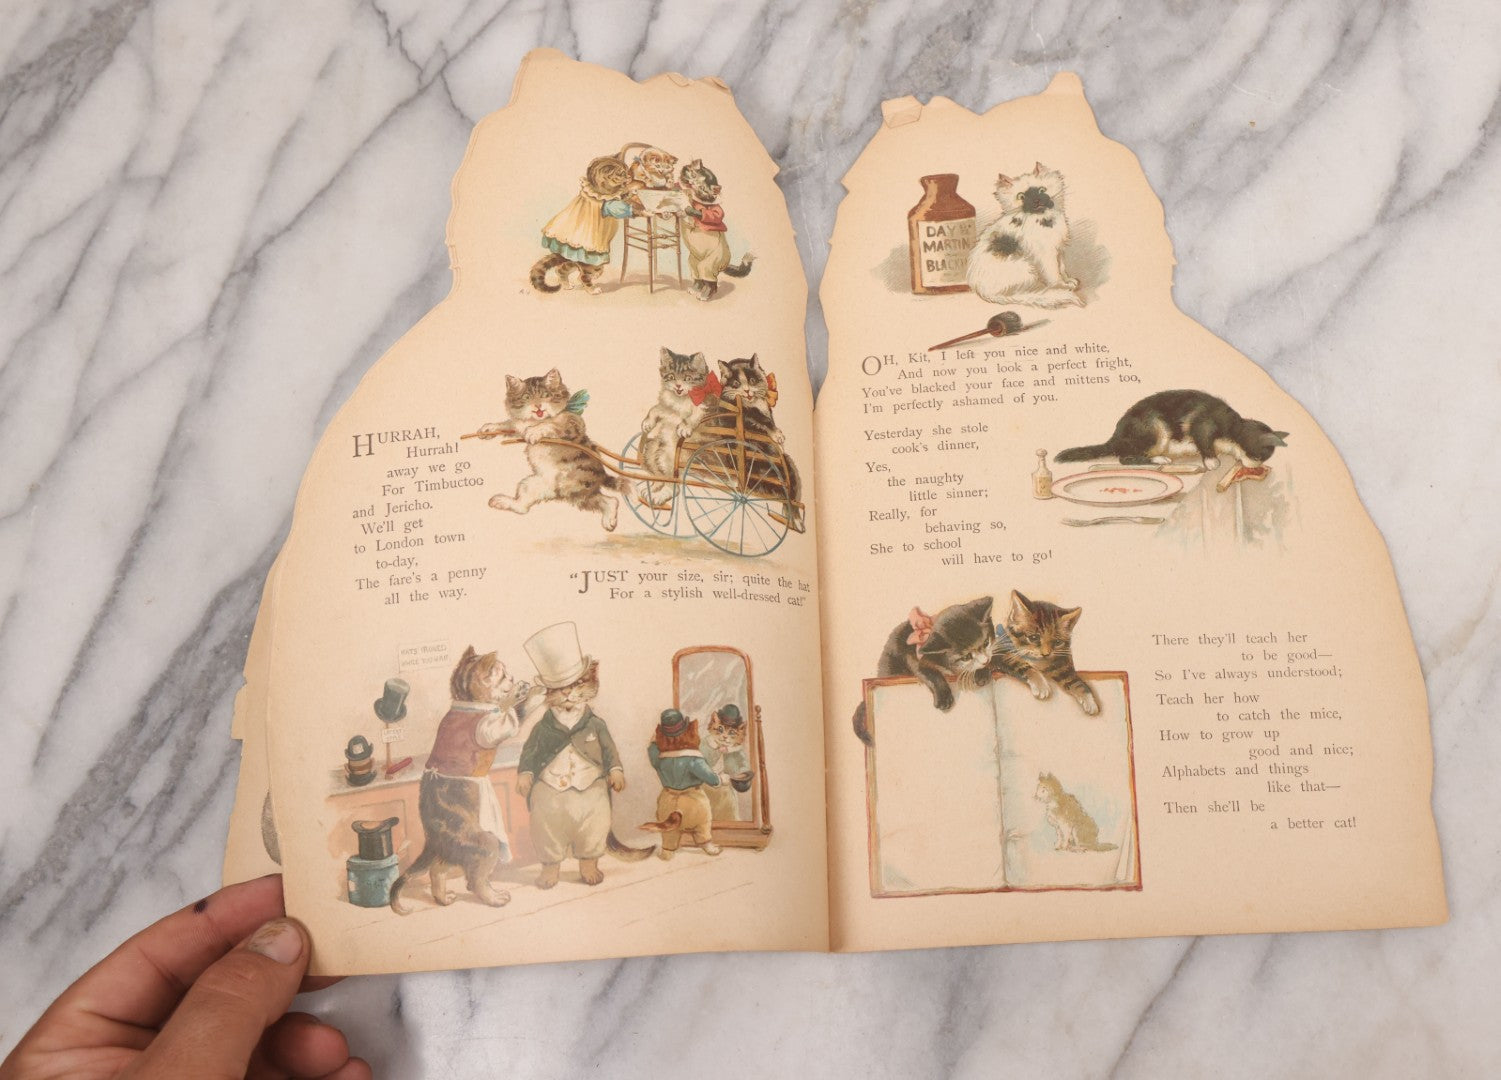 HURRAH,
Hurrah!
away we go
For Timbuctoo
and Jericho.
We'll get
to London town
to-day,
The fare's a penny
all the way.
"JUST your size, sir; quite the hat
For a stylish well-dressed cat!"
HATS IRONED
WHILE YOU WAIT
LATEST
STYLE
DAY &
MARTIN
BLACK
OH, Kit, I left you nice and white,
And now you look a perfect fright,
You've blacked your face and mittens too,
I'm perfectly ashamed of you.
Yesterday she stole
cook's dinner,
Yes,
the naughty
little sinner;
Really, for
behaving so,
She to school
will have to go!
There they'll teach her
to be good—
So I've always understood;
Teach her how
to catch the mice,
How to grow up
good and nice;
Alphabets and things
like that—
Then she'll be
a better cat!